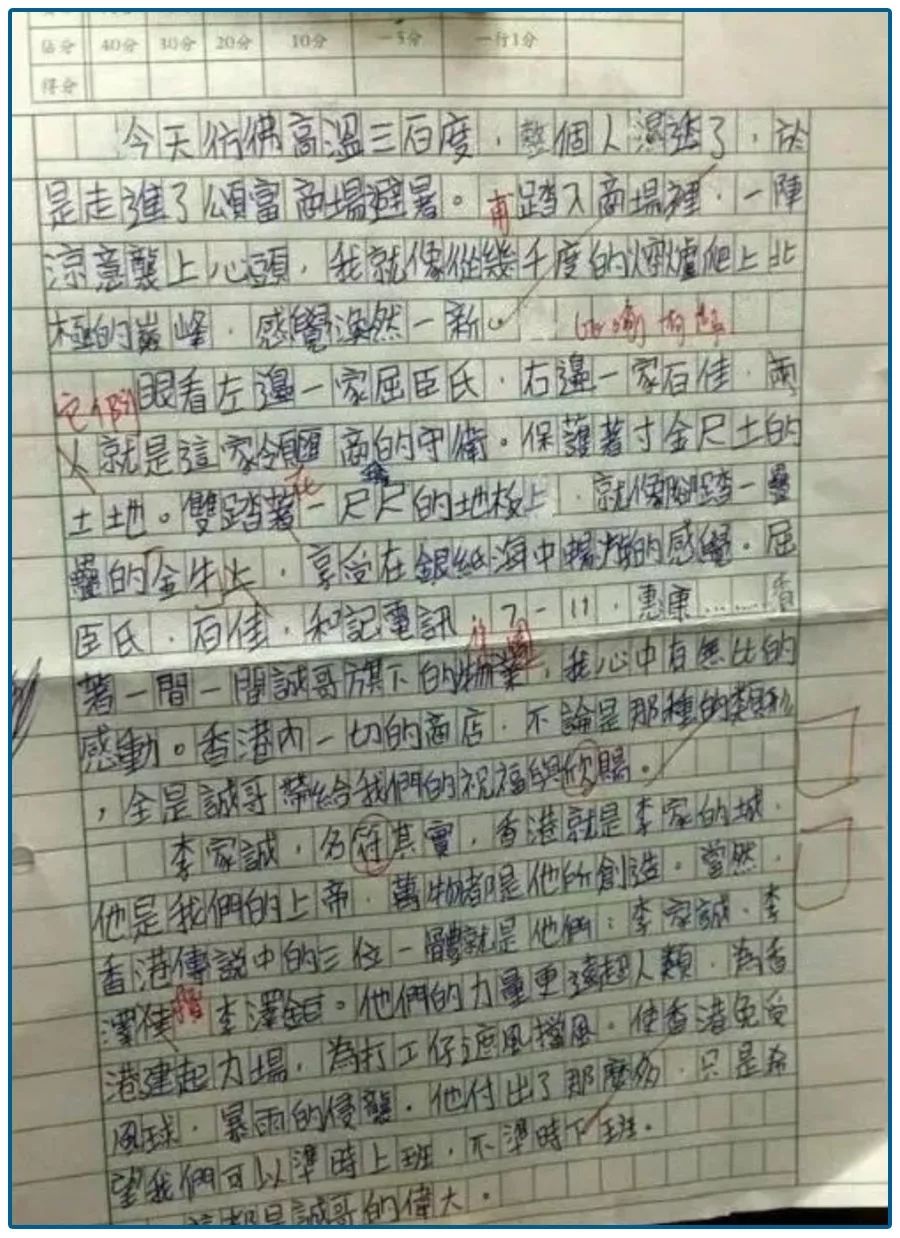 佔分 40分 30分 20分 10分 -5分 一行1分
得分
今天彷彿高溫三百度，整個人濕透了，於
是走進了頌富商場避暑。甫踏入商場裡，一陣
涼意襲上心頭，我就像從幾千度的火爐爬上北
極的巔峰，感覺渙然一新。
眼看左邊一家屈臣氏，右邊一家百佳，兩
它們
人就是這家領匯商的守衛。保護著寸金尺土的
土地。雙踏著一尺尺的地板上，就像腳踏一疊
疊的金牛上，享受在銀紙海中的感覺。屈
臣氏，百佳，和記電訊，7-11，惠康……看
著一間一間誠哥旗下的物業，我心中有無比的
感動。香港內一切的商店，不論是那種的類形
，全是誠哥帶給我們的祝福與欣賜。
李家誠，名符其實，香港就是李家的城，
他是我們的上帝，萬物都是他所創造。當然，
香港傳說中的三位一體就是他們：李家誠、李
澤楷李澤鉅。他們的力量更遠超人類，為香
港建起力場，為打工仔遮風擋風。使香港免受
風球，暴雨的侵襲。他付出了那麼多，只是希
望我們可以準時上班，不準時下班。
這都是誠哥的偉大。